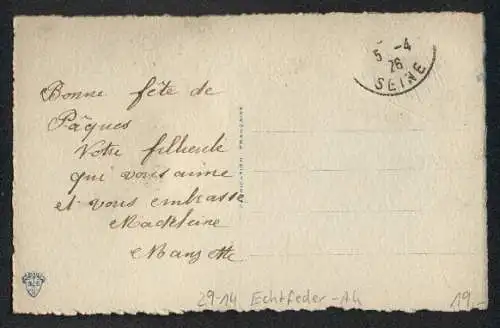 Bonne fête de
Pâques
Votre filleule
qui vous aime
et vous embrasse
Madeleine
Manzette
5 -4
26
SEINE
FABRICATION FRANÇAISE
29-14 Echtfeder-Ak
19.-